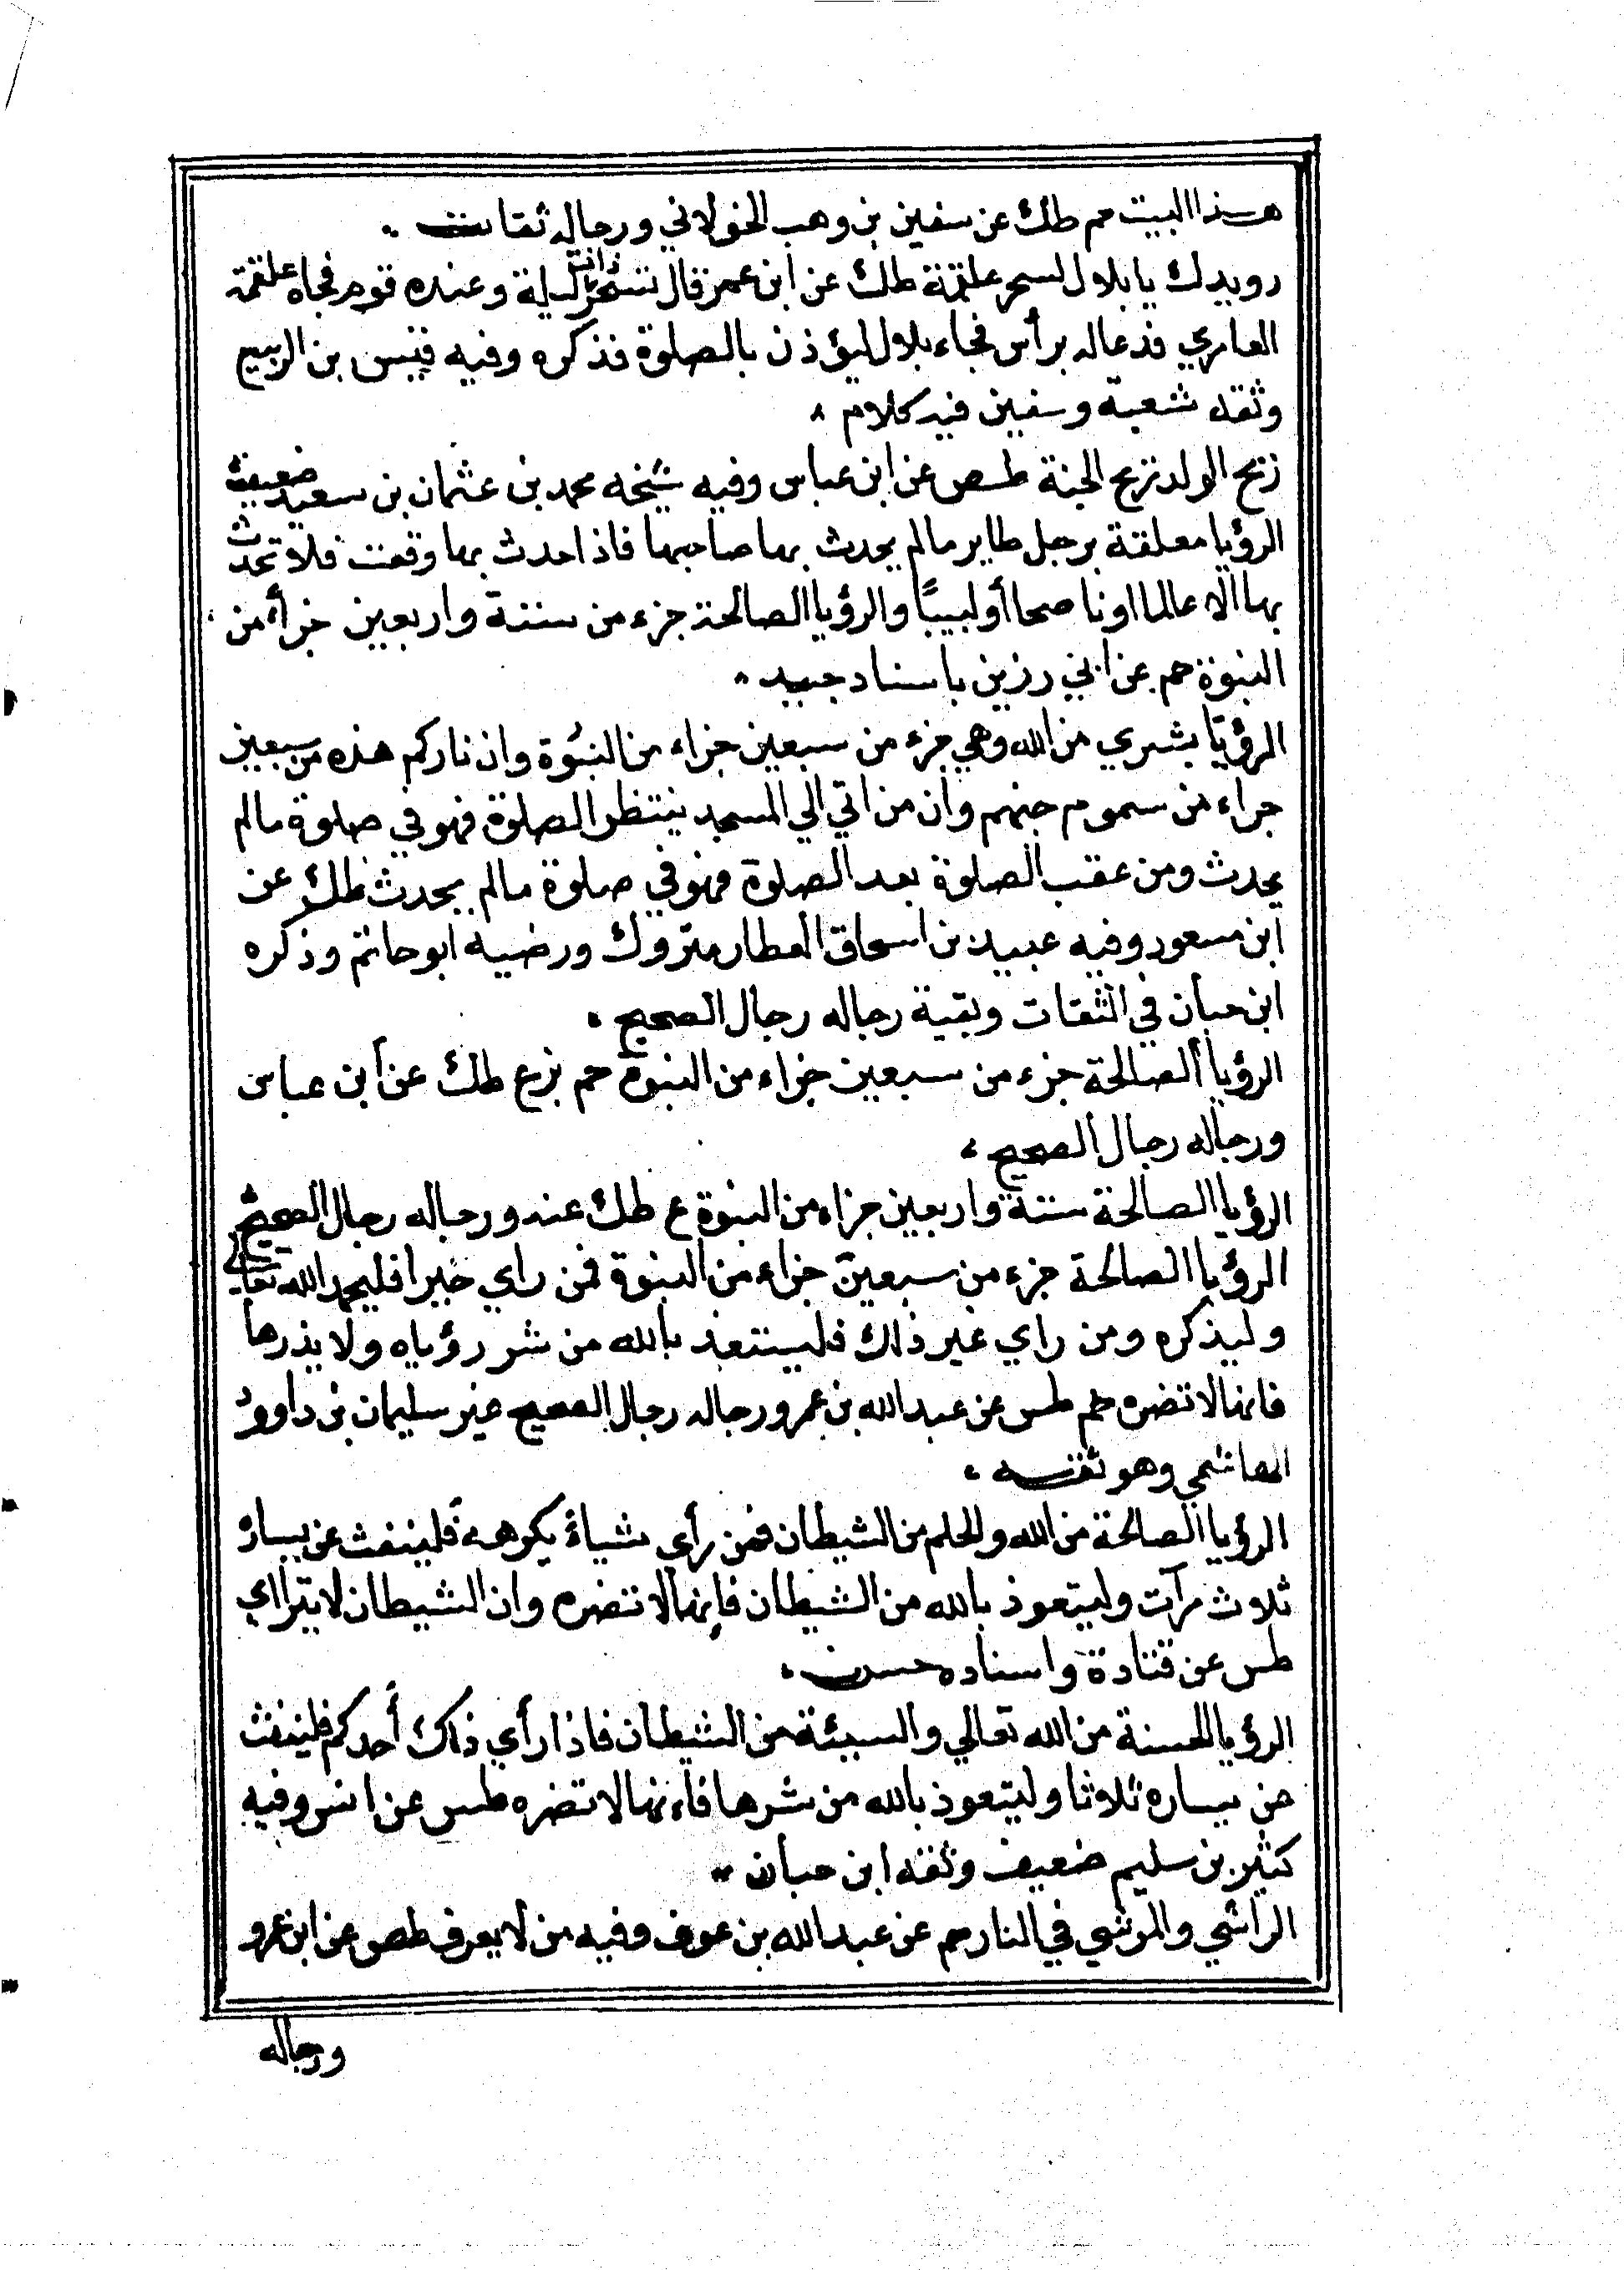 هذا البيت حم طك عن سفين بن وهب الخولاني ورجاله ثقات
رويدك يا بلال لسحر علقمة طك عن ابن عمر قال تسحر ذات ليلة وعنده قوم فجاه علقمة
العامري فدعاله برأس فجاء بلال ليؤذن بالصلوة فذكره وفيه قيس بن الربيع
وثقه شعبة وسفين فيه كلام
زيح الولد تريح الجنة طسص عن ابن عباس وفيه شيخه محمد بن عثمان بن سعيد ضعيف
الرؤيا معلقة برجل طاير مالم يحدث بها صاحبها فاذا حدث بها وقعت فلا تحدث
بها الا عالما او ناصحا أو لبيبًا والرؤيا الصالحة جزء من ستة واربعين جزأ من
النبوة حم عن ابي رزين باسناد جيد
الرؤيا بشري من الله وهي جزء من سبعين جزاء من النبوة وان ناركم هذه من سبعين
جراء من سموم جهنم وان من اتي الي المسجد ينتظر الصلوة فهو في صلوة مالم
يحدث ومن عقب الصلوة بعد الصلوة فهو في صلوة مالم يحدث طك عن
ابن مسعود وفيه عبيد بن اسحاق العطار متروك ورضيه ابو حاتم وذكره
ابن حبان في الثقات وبقية رجاله رجال الصحيح
الرؤيا الصالحة جزء من سبعين جزاء من النبوة حم بز ع طك عن ابن عباس
ورجاله رجال الصحيح
الرؤيا الصالحة ستة واربعين جزاء من النبوة ع طك عنه ورجاله رجال الصحيح
الرؤيا الصالحة جزء من سبعين جزاء من النبوة فمن راي خيرا فليحمد الله تعالي
وليذكره ومن راي غير ذلك فليستعذ بالله من شر رؤياه ولا يذرها
فانها لا تضره حم طس عن عبد الله بن عمرو رجاله رجال الصحيح غير سليمان بن داوود
الهاشمي وهو ثقة
الرؤيا الصالحة من الله والحلم من الشيطان فمن رأي شياء يكرهه فلينفث عن يساره
ثلاث مرات وليتعوذ بالله من الشيطان فإنها لا تضره وان الشيطان لا يتراإي
طس عن قتادة واسناده حسن
الرؤيا الحسنة من الله تعالي والسيئة من الشيطان فاذا رأي ذلك أحدكم فلينفث
عن يساره ثلاثا وليتعوذ بالله من شرها فاءنها لا تضره طس عن انس وفيه
كثير بن سليم ضعيف وثقه ابن حبان
الراشي والمرتشي في النار حم عن عبد الله بن عوف وفيه من لا يعرف طص عن ابن عمرو
ورجاله